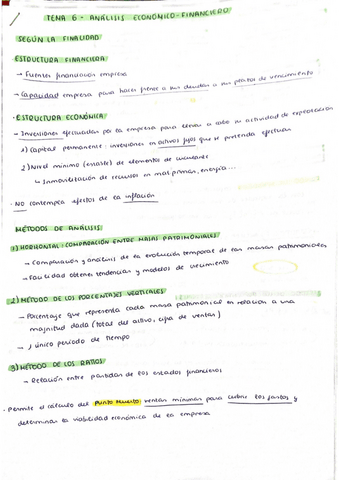 TEMA 6 - ANÁLISIS ECONÓMICO-FINANCIERO
SEGÚN LA FINALIDAD
ESTRUCTURA FINANCIERA
- Fuentes financiación empresa
- Capacidad empresa para hacer frente a sus deudas a sus plazos de vencimiento
ESTRUCTURA ECONÓMICA
- Inversiones efectuadas por la empresa para llevar a cabo su actividad de explotación
1) Capital permanente: inversiones en activos fijos que se pretenda efectuar
2) Nivel mínimo (estable) de elementos de circulante
↳ Inmovilización de recursos en mat primas, energía...
- NO contempla efectos de la inflación
MÉTODOS DE ANÁLISIS
1) HORIZONTAL: COMPARACIÓN ENTRE MASAS PATRIMONIALES
- Comparación y análisis de la evolución temporal de las masas patrimoniales
- Facilidad obtener tendencias y modelos de crecimiento
2) MÉTODO DE LOS PORCENTAJES VERTICALES
- Porcentaje que representa cada masa patrimonial en relación a una
magnitud dada (total del activo, cifra de ventas)
- 1 único periodo de tiempo
3) MÉTODO DE LOS RATIOS
- Relación entre partidas de los estados financieros
- Permite el cálculo del Punto Muerto: ventas mínimas para cubrir los gastos y
determinar la viabilidad económica de la empresa